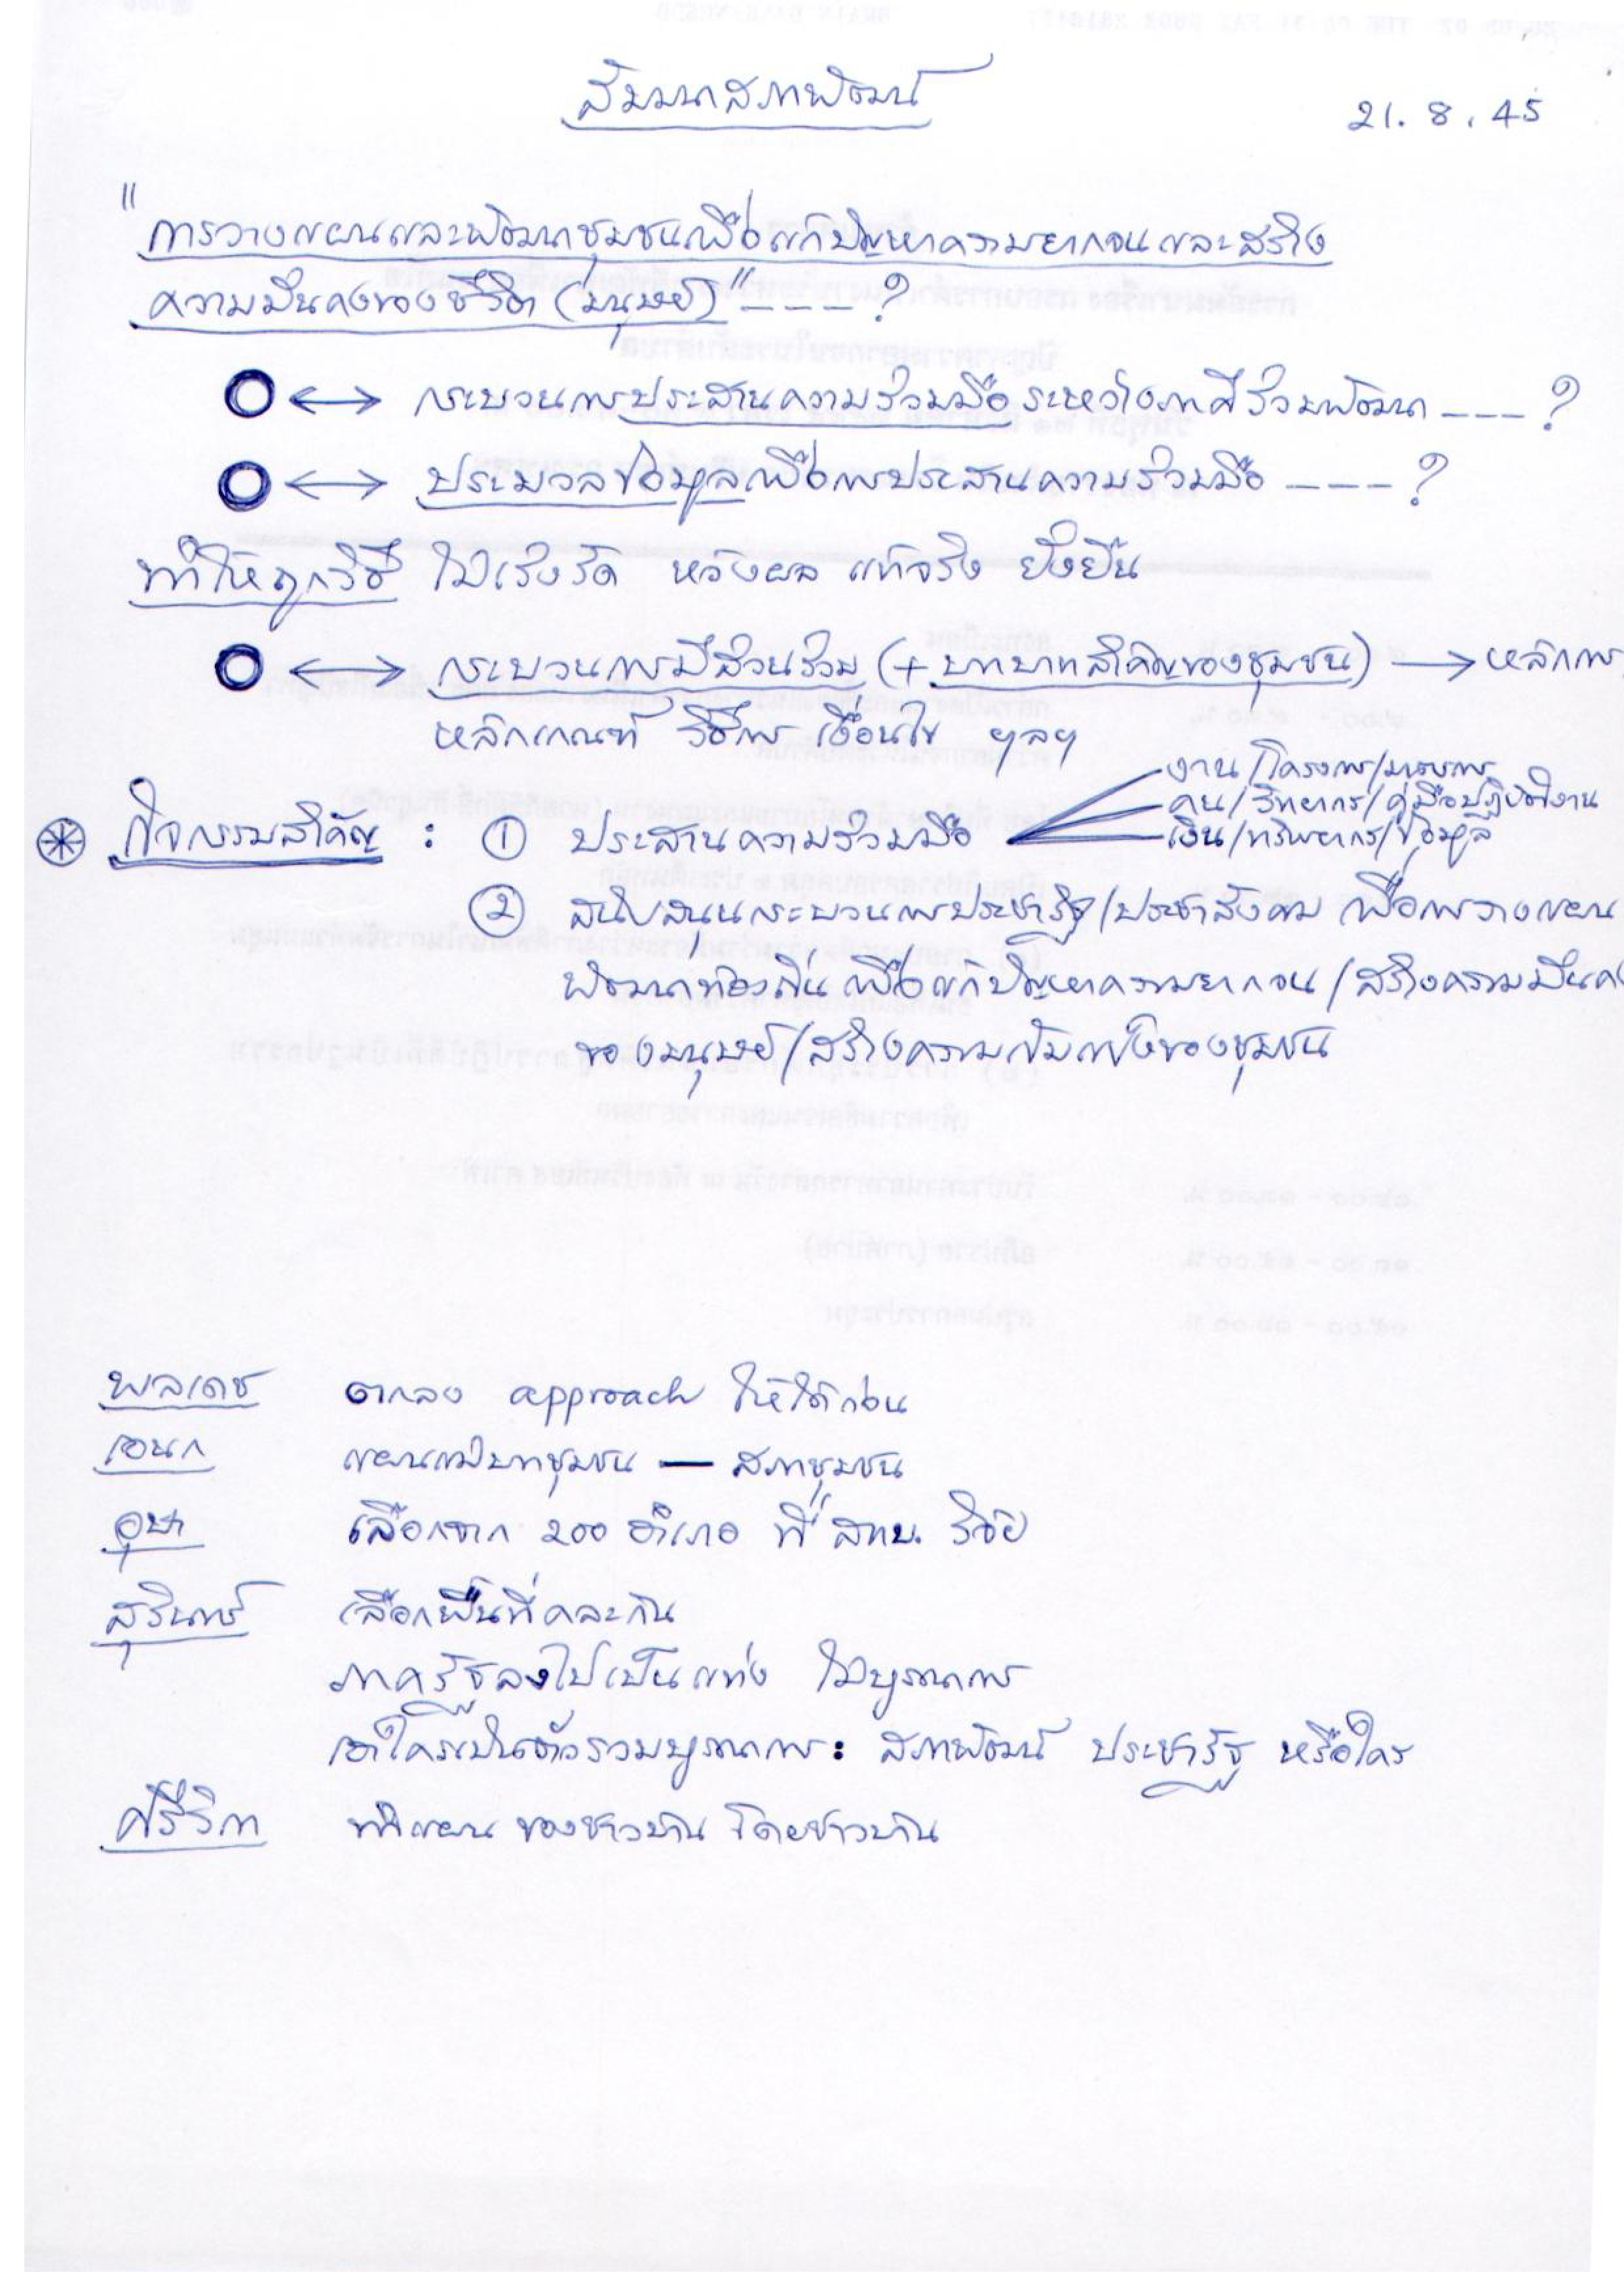 สัมมนาสภาพัฒน์
21.8.45
"การวางแผนและพัฒนาชุมชนเพื่อแก้ปัญหาความยากจนและสร้าง
ความมั่นคงของชีวิต (มนุษย์)" ---- ?
กระบวนการประสานความร่วมมือระหว่างภาคีร่วมพัฒนา ---- ?
ประมวลข้อมูลเพื่อการประสานความร่วมมือ ---- ?
ทำให้ถูกวิธี ไม่เร่งรัด หวังผล แท้จริง ยั่งยืน
กระบวนการมีส่วนร่วม (+ บทบาทสำคัญของชุมชน) → หลักการ
หลักเกณฑ์ วิธีการ เงื่อนไข ฯลฯ
งาน/โครงการ/มาตรการ
คน/วิทยากร/คู่มือปฏิบัติงาน
กิจกรรมสำคัญ : ① ประสานความร่วมมือ
เงิน/ทรัพยากร/ข้อมูล
② สนับสนุนกระบวนการประชารัฐ/ประชาสังคม เพื่อการวางแผน
พัฒนาท้องถิ่น เพื่อแก้ปัญหาความยากจน/สร้างความมั่นคง
ของมนุษย์/สร้างความเข้มแข็งของชุมชน
พลเดช ตกลง approach ให้ได้ก่อน
เอนก แผนแม่บทชุมชน — สภาชุมชน
อุษา เลือกจาก 200 อำเภอ ที่ สทบ. วิจัย
สุรินทร์ เลือกพื้นที่คละกัน
ภาครัฐลงไปเป็นแท่ง ไม่บูรณาการ
เอาใครเป็นตัวรวมบูรณาการ : สภาพัฒน์ ประชารัฐ หรือใคร
ทำแผน ของชาวบ้าน โดยชาวบ้าน